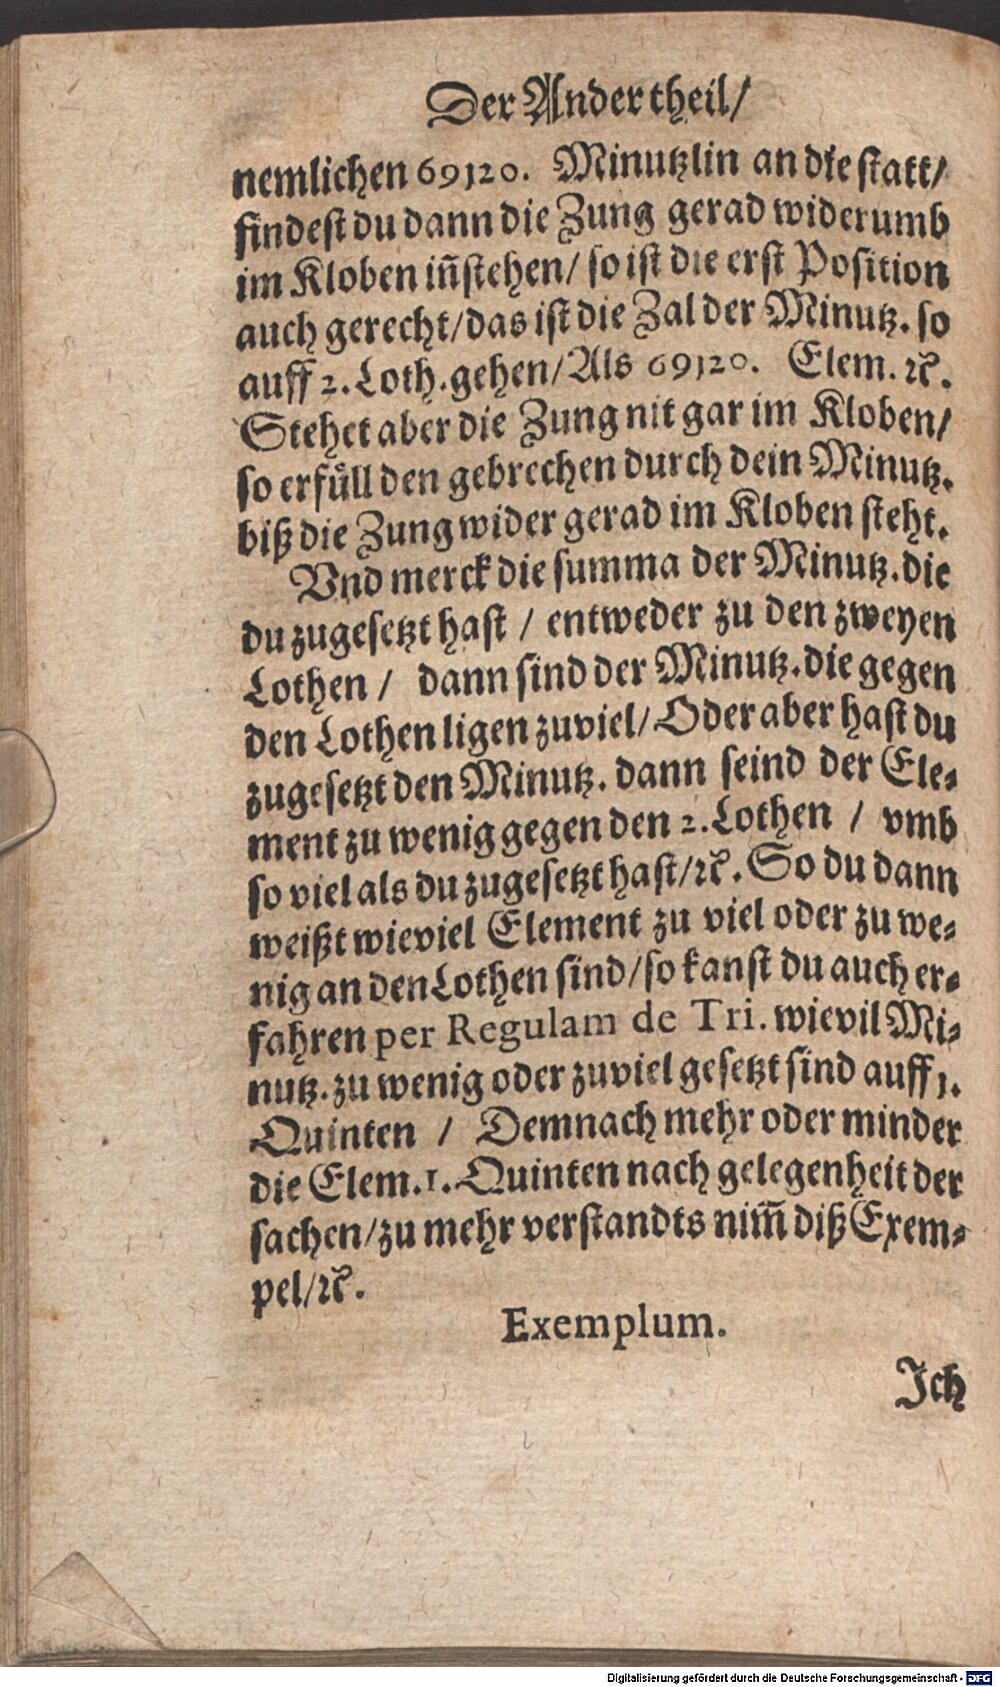 Der Ander theil/
nemlichen 69120. Minutzlin an die statt/
findest du dann die Zung gerad widerumb
im Kloben iñstehen/ so ist die erst Position
auch gerecht/das ist die Zal der Minutz. so
auff 2. Loth. gehen/Als 69120. Elem. ꝛc.
Stehet aber die Zung nit gar im Kloben/
so erfüll den gebrechen durch dein Minutz.
biß die Zung wider gerad im Kloben steht.
Vnd merck die summa der Minutz. die
du zugesetzt hast / entweder zu den zweyen
Lothen / dann sind der Minutz. die gegen
den Lothen ligen zuviel/ Oder aber hast du
zugesetzt den Minutz. dann seind der Ele-
ment zu wenig gegen den 2. Lothen / vmb
so viel als du zugesetzt hast/ꝛc. So du dann
weißt wieviel Element zu viel oder zu we-
nig an den Lothen sind/so kanst du auch er-
fahren per Regulam de Tri. wievil Mi-
nutz. zu wenig oder zuviel gesetzt sind auff 1.
Quinten / Demnach mehr oder minder
die Elem. 1. Quinten nach gelegenheit der
sachen/zu mehr verstandts nim̃ diß Exem-
pel/ꝛc.
Exemplum.
Ich
Digitalisierung gefördert durch die Deutsche Forschungsgemeinschaft - DFG